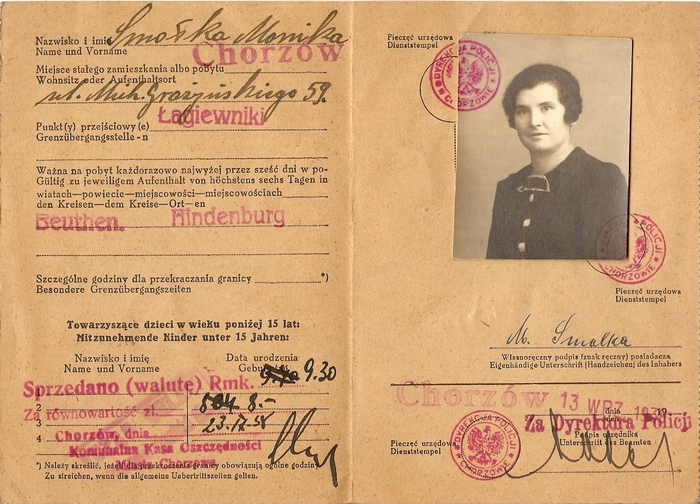 Nazwisko i imię Smołka Monika
Name und Vorname
Chorzów
Miejsce stałego zamieszkania albo pobytu
Wohnsitz oder Aufenthaltsort
ul. Mich. Grażyńskiego 59.
Łagiewniki
Punkt(y) przejściowy(e)
Grenzübergangsstelle-n
Ważna na pobyt każdorazowo najwyżej przez sześć dni w po-
Gültig zu jeweiligem Aufenthalt von höchstens sechs Tagen in
wiatach—powiecie—miejscowości—miejscowościach
den Kreisen—dem Kreise—Ort—en
Beuthen. Hindenburg
Szczególne godziny dla przekraczania granicy *)
Besondere Grenzübergangszeiten
Towarzyszące dzieci w wieku poniżej 15 lat:
Mitzunehmende Kinder unter 15 Jahren:
Nazwisko i imię Data urodzenia
Name und Vorname
Sprzedano (walutę) Rmk. 9.30
1
2
Za równowartość zł. 8.-
3
4
Chorzów, dnia
Komunalna Kasa Oszczędności
*) Należy skreślić, jeżeli dla przekroczenia granicy obowiązują ogólne godziny
Zu streichen, wenn die allgemeine Uebertrittszeiten gelten.
Pieczęć urzędowa
Dienststempel
DYREKCJA POLICJI
W CHORZOWIE
POLICJI
CHORZOWIE
Pieczęć urzędowa
Dienststempel
M. Smolka
Własnoręczny podpis (znak ręczny) posiadacza
Eigenhändige Unterschrift (Handzeichen) des Inhabers
Chorzów 13 WRZ.
dnia 19
Za Dyrektora Policji
Pieczęć urzędowa
Dienststempel
DYREKCJA POLICJI
CHORZOWIE
Podpis urzędnika
Unterschrift des Beamten